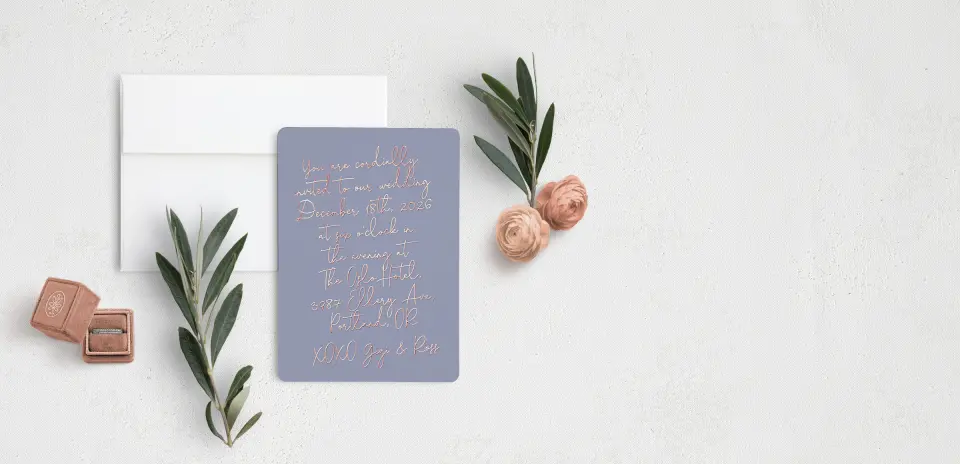 You are cordially
invited to our wedding
December 18th, 2026
at six o'clock in
the evening at
The Glo Hotel,
3287 Ellery Ave
Portland, OR
XOXO Gigi & Ross